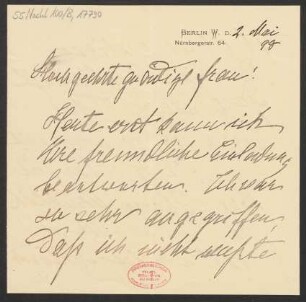 Berlin W. d. 2. Mai
Nürnbergerstr. 64.
99
Hochgeehrte gnädige Frau!
Heute erst kann ich
Ihre freundliche Einladung
beantworten. Ich war
so sehr angegriffen,
daß ich nicht wußte